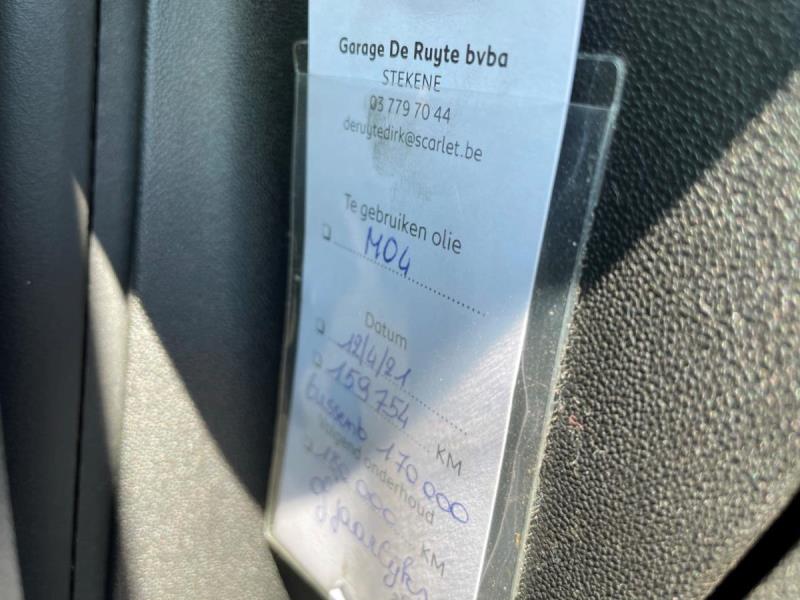 Garage De Ruyte bvba
STEKENE
03 779 70 44
deruytedirk@scarlet.be
Te gebruiken olie
M04
Datum
12/4/21
159754 KM
tussenb 170 000
Volgend onderhoud
180 000 KM
of jaarlijks